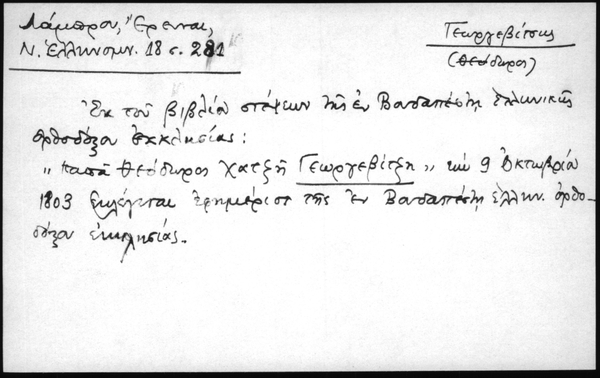 Λάμπρου, Ἔρευναι,
Ν. Ἑλληνομν. 18 σ. 281
Γεωργεβίτσης
(Θεόδωρος)
Ἐκ τοῦ βιβλίου στέψεων τῆς ἐν Βουδαπέστῃ ἑλληνικῆς
ὀρθοδόξου ἐκκλησίας:
"παπᾶ Θεόδωρος Χατζῆ Γεωργεβίτζη" τῇ 9 Ὀκτωβρίου
1803 ἐκλέγεται ἐφημέριος τῆς ἐν Βουδαπέστῃ ἑλλην. ὀρθο-
δόξου ἐκκλησίας.